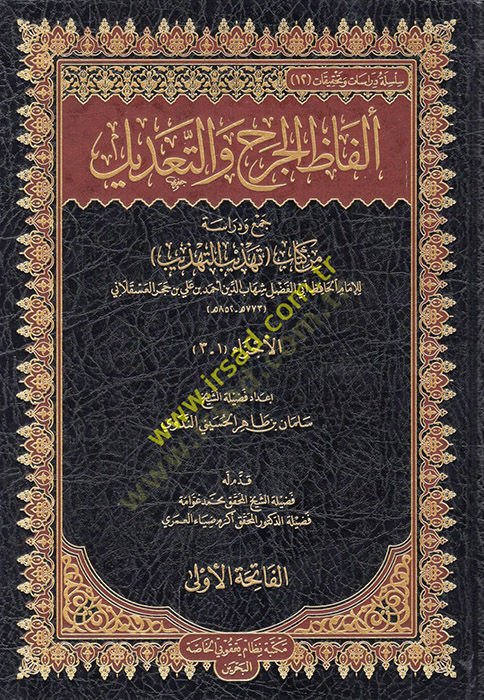 سلسلة دراسات وتحقيقات (١٢)
ألفاظ الجرح والتعديل
جمع ودراسة
من كتاب (تهذيب التهذيب)
للإمام الحافظ أبي الفضل شهاب الدين أحمد بن علي بن حجر العسقلاني
(٧٧٣هـ - ٨٥٢هـ)
الأجزاء (١-٣)
إعداد فضيلة الشيخ
سلمان بن طاهر الحسيني الندوي
www.irsad.com.tr
قدم له
فضيلة الشيخ المحقق محمد عوامة
فضيلة الدكتور المحقق أكرم ضياء العمري
الفاتحة الأولى
مكتبة نظام يعقوبي الخاصة
البحرين